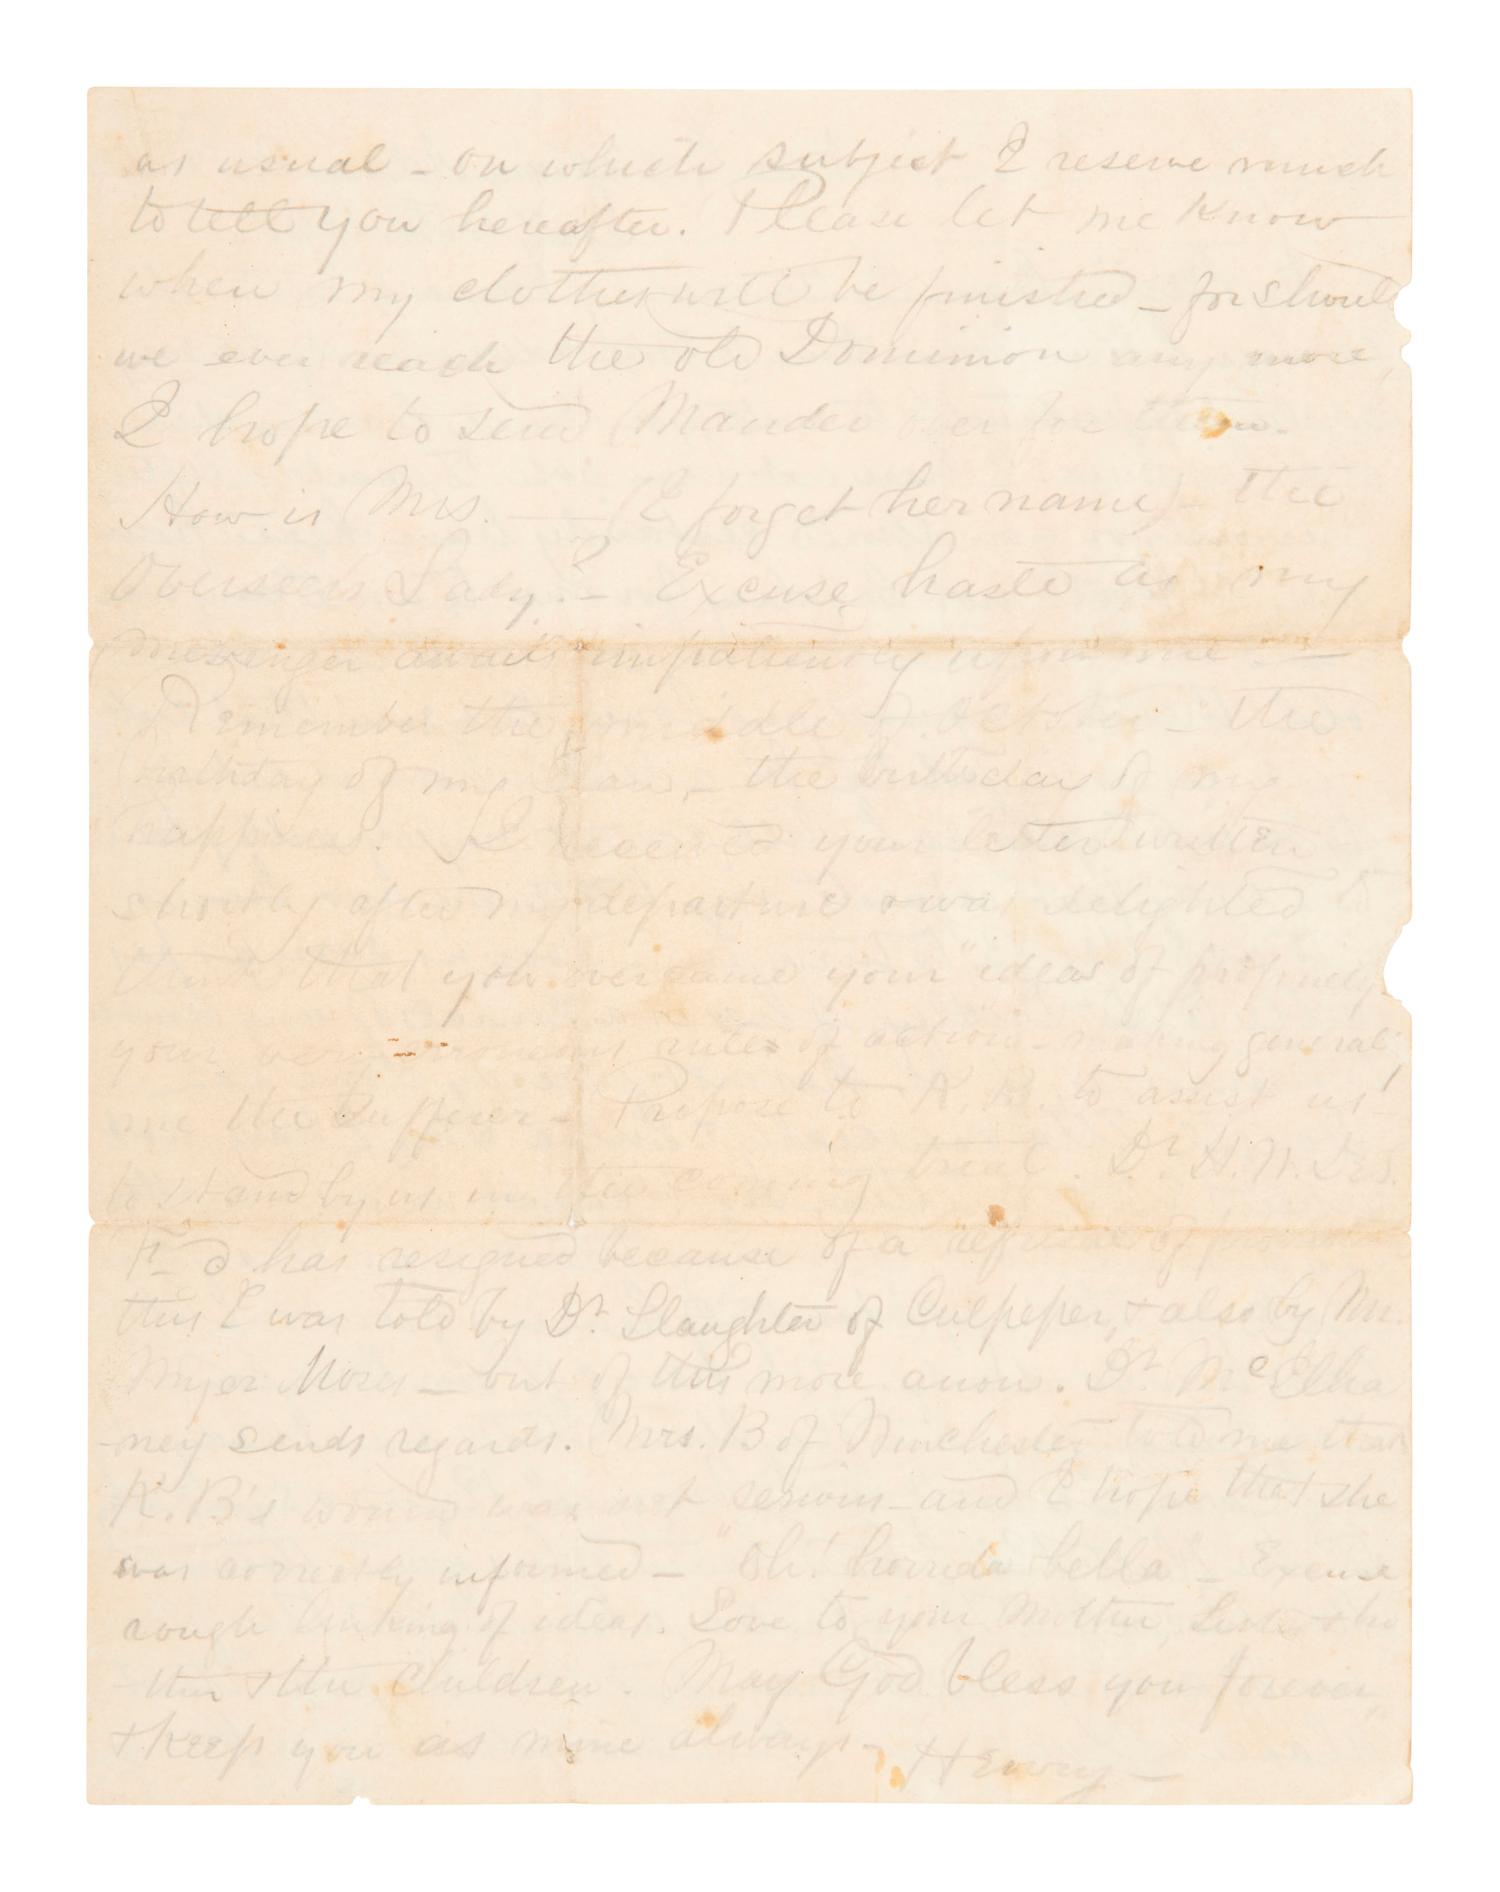 as usual - on which subject I reserve much
to tell you hereafter. Please let me know
when my clothes will be finished - for should
we ever reach the old Dominion any more,
I hope to send Mander over for them.
How is Mrs. —— (I forget her name) - the
Overseer's Lady? - Excuse haste as my
messenger awaits impatiently upon me -
Remember the middle of October - the
birthday of my - the birthday of my
happiness. I received your letter written
shortly after my departure & was delighted to
think that you overcame your "ideas of propriety"
your very erroneous rules of action - making generally
me the sufferer - Propose to K. B. to assist us -
to stand by us in the coming trial. Dr. H. W.
has resigned because of a refusal of
this I was told by Dr. Slaughter of Culpeper, & also by Mr.
Myer Moses - but of this more anon. Dr. McElha
-ney sends regards. Mrs. B of Winchester told me that
K. B's wound was not serious - and I hope that she
was correctly informed - "Oh! horrida bella" - Excuse
rough linking of ideas. Love to your Mother, Sister & bro
-ther & the children. May God bless you forever,
& keep you as mine always -
Henry -